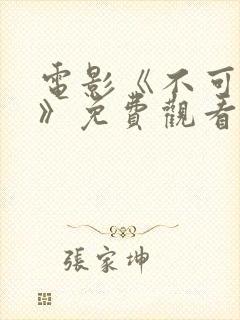 電影《不可
》免費觀看
張家坤